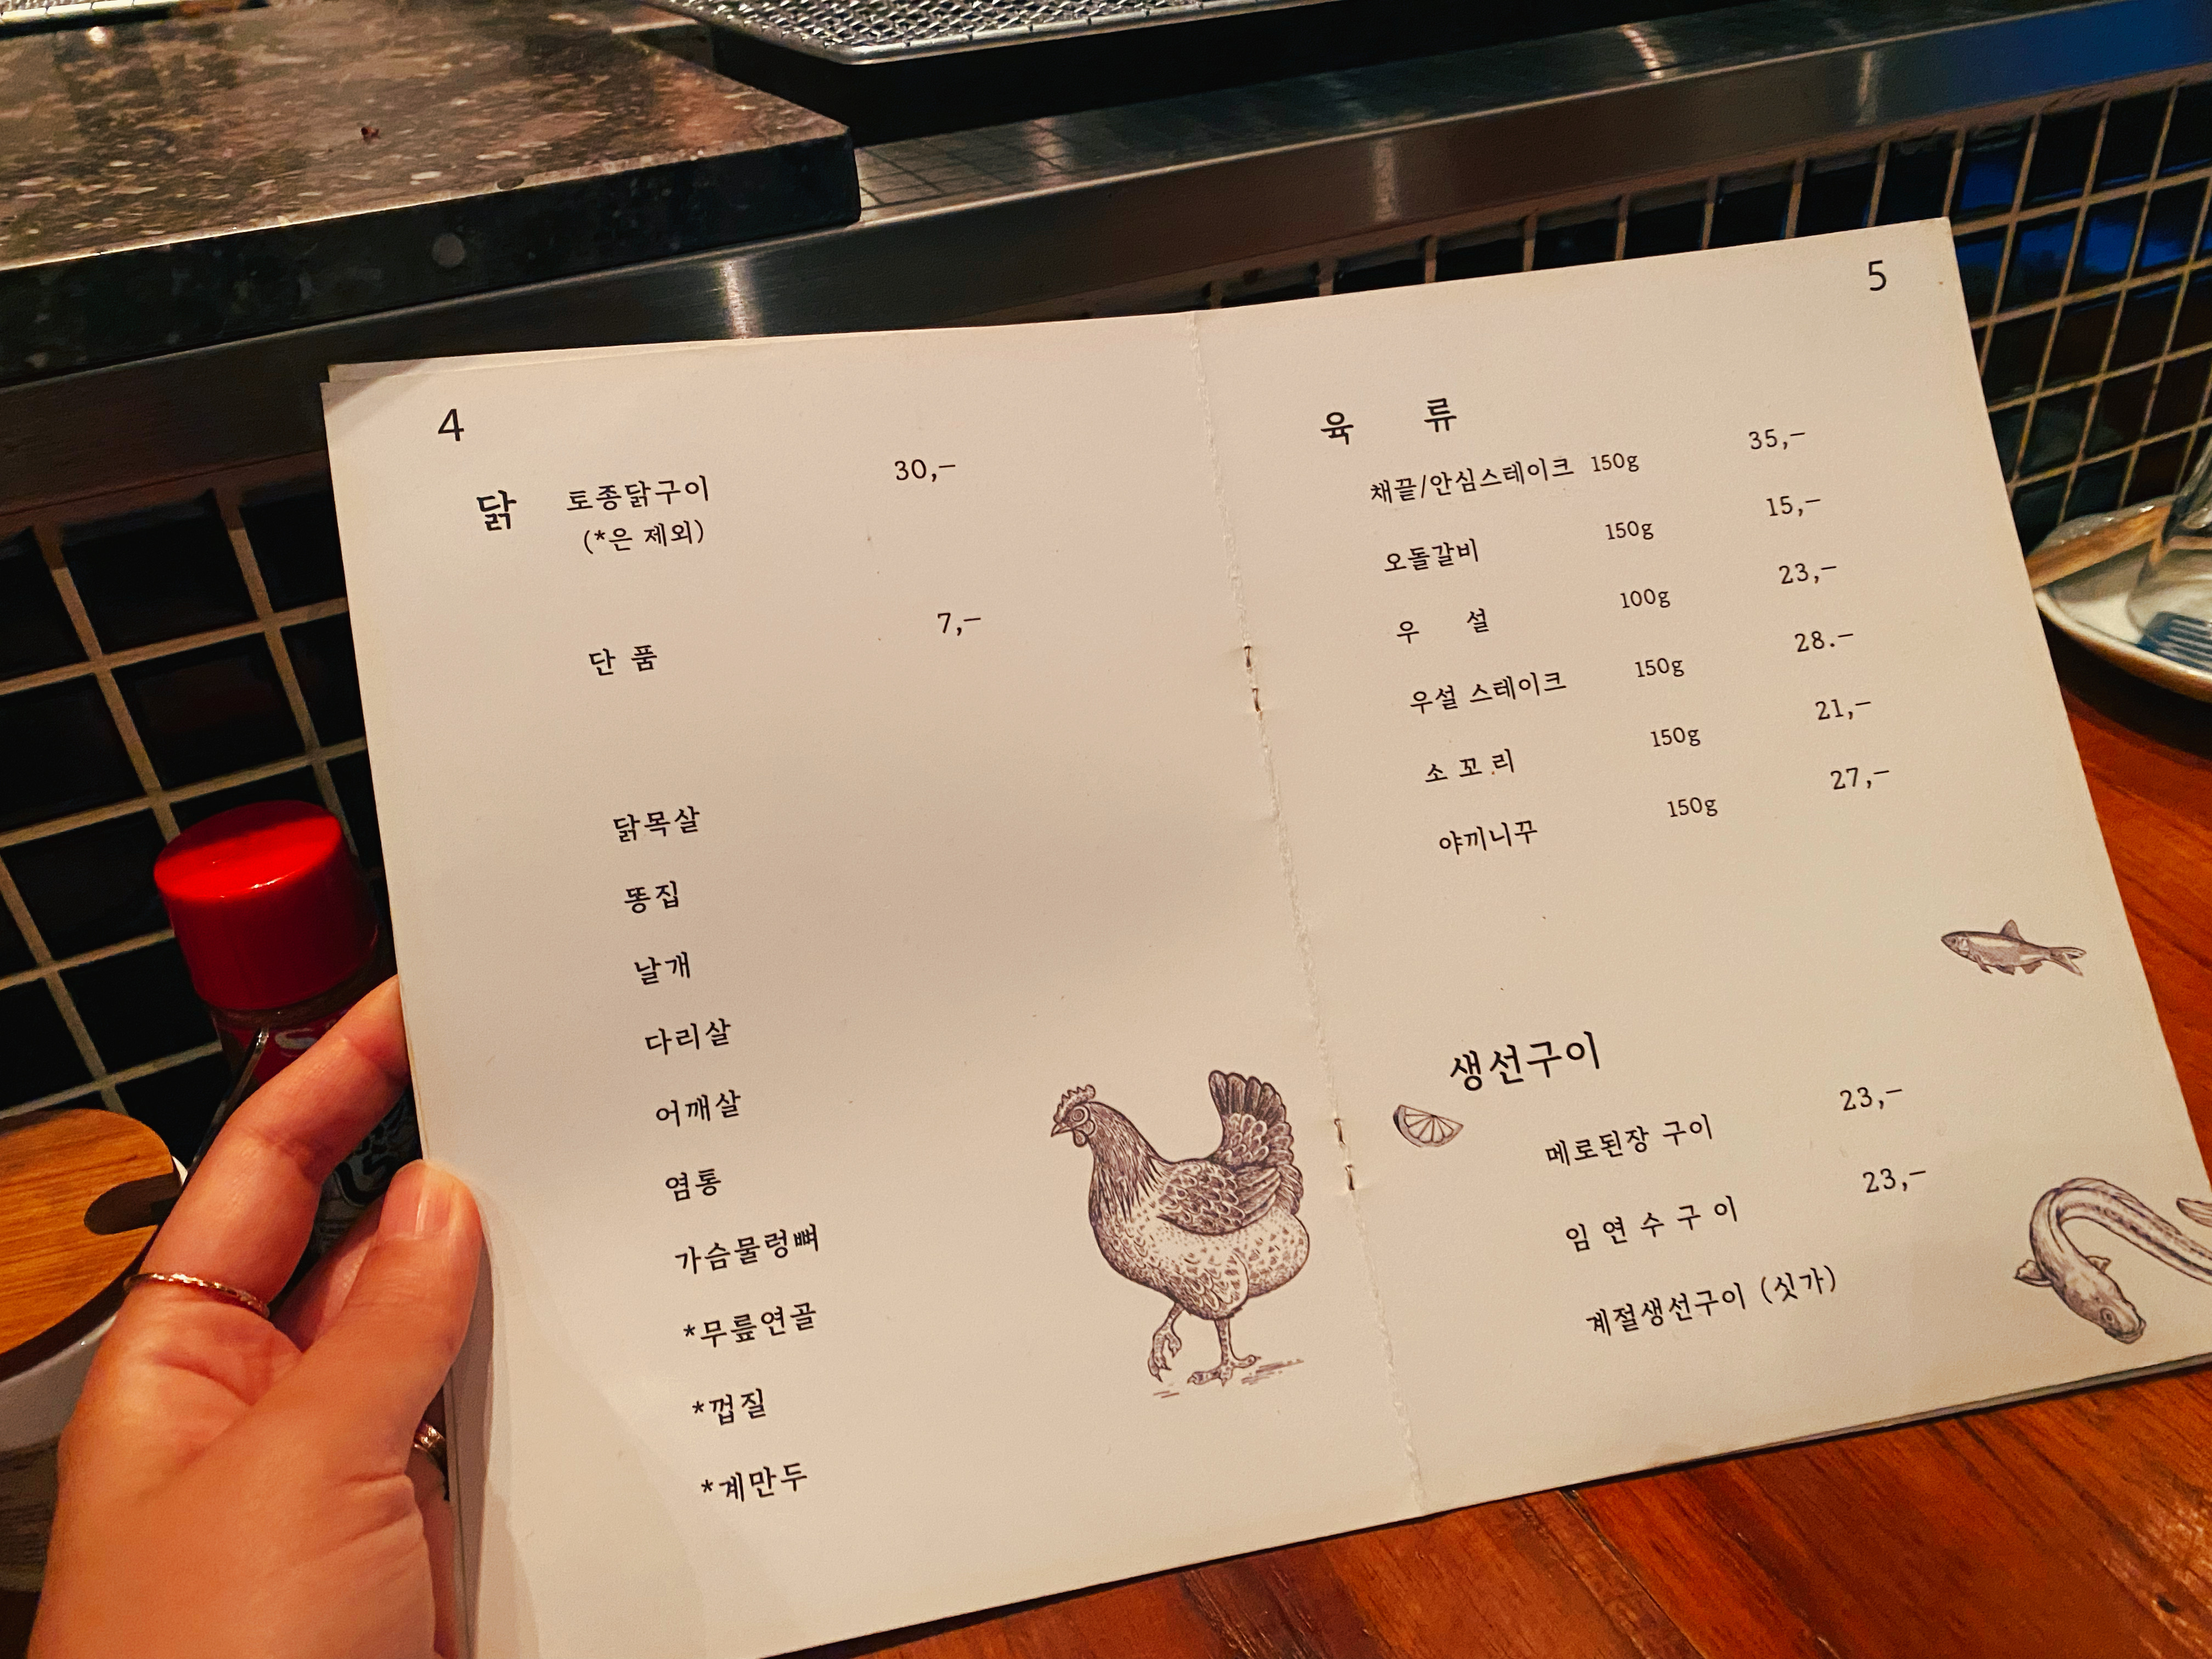 4
닭 토종닭구이 30,-
(*은 제외)
단 품 7,-
닭목살
똥집
날개
다리살
어깨살
염통
가슴물렁뼈
*무릎연골
*껍질
*계만두
5
육 류
채끝/안심스테이크 150g 35,-
오돌갈비 150g 15,-
우 설 100g 23,-
우설 스테이크 150g 28.-
소 꼬 리 150g 21,-
야끼니꾸 150g 27,-
생선구이
메로된장 구이 23,-
임 연 수 구 이 23,-
계절생선구이 (싯가)